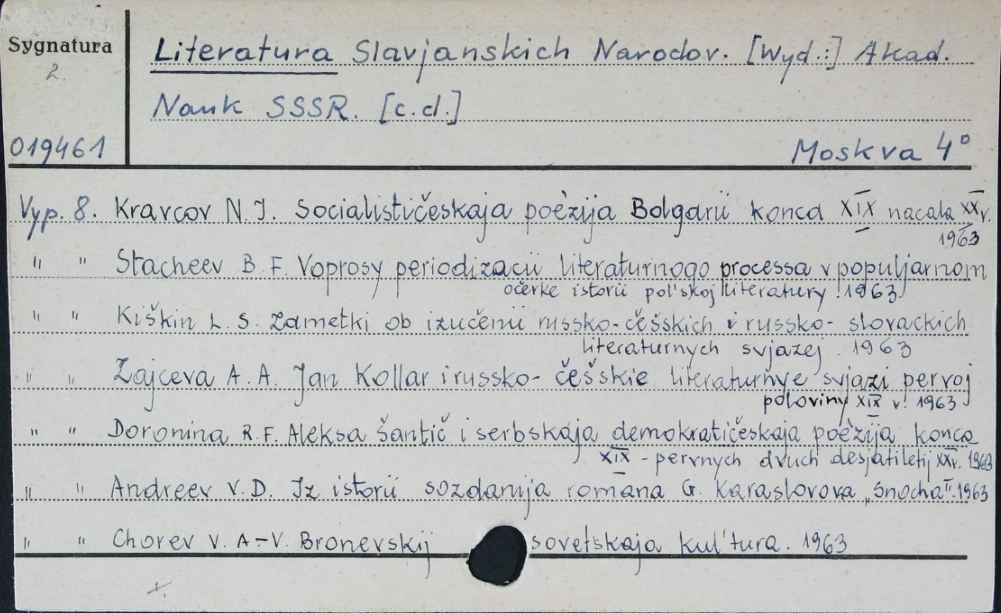 Sygnatura
2
019461
Literatura Slavjanskich Narodov. [Wyd.:] Akad.
Nauk SSSR. [c.d.]
Moskva 4°
Vyp. 8. Kravcov N. I. Socialističeskaja poèzija Bolgarii konca XIX nacala XX v.
1963
" " Stacheev B. F. Voprosy periodizacii literaturnogo processa v populjarnom
očerke istorii pol'skoj literatury. 1963
" " Kiškin L. S. Zametki ob izučenii russko-češskich i russko-slovackich
literaturnych svjazej. 1963
" " Zajceva A. A. Jan Kollar i russko-češskie literaturnye svjazi pervoj
poloviny XIX v. 1963
" " Doronina R. F. Aleksa Šantič i serbskaja demokratičeskaja poèzija konca
XIX - pervych dvuch desjatiletij XX v. 1963
" " Andreev V. D. Iz istorii sozdanija romana G. Karaslovova „Snocha". 1963
" " Chorev V. A. - V. Bronevskij sovetskaja kul'tura. 1963